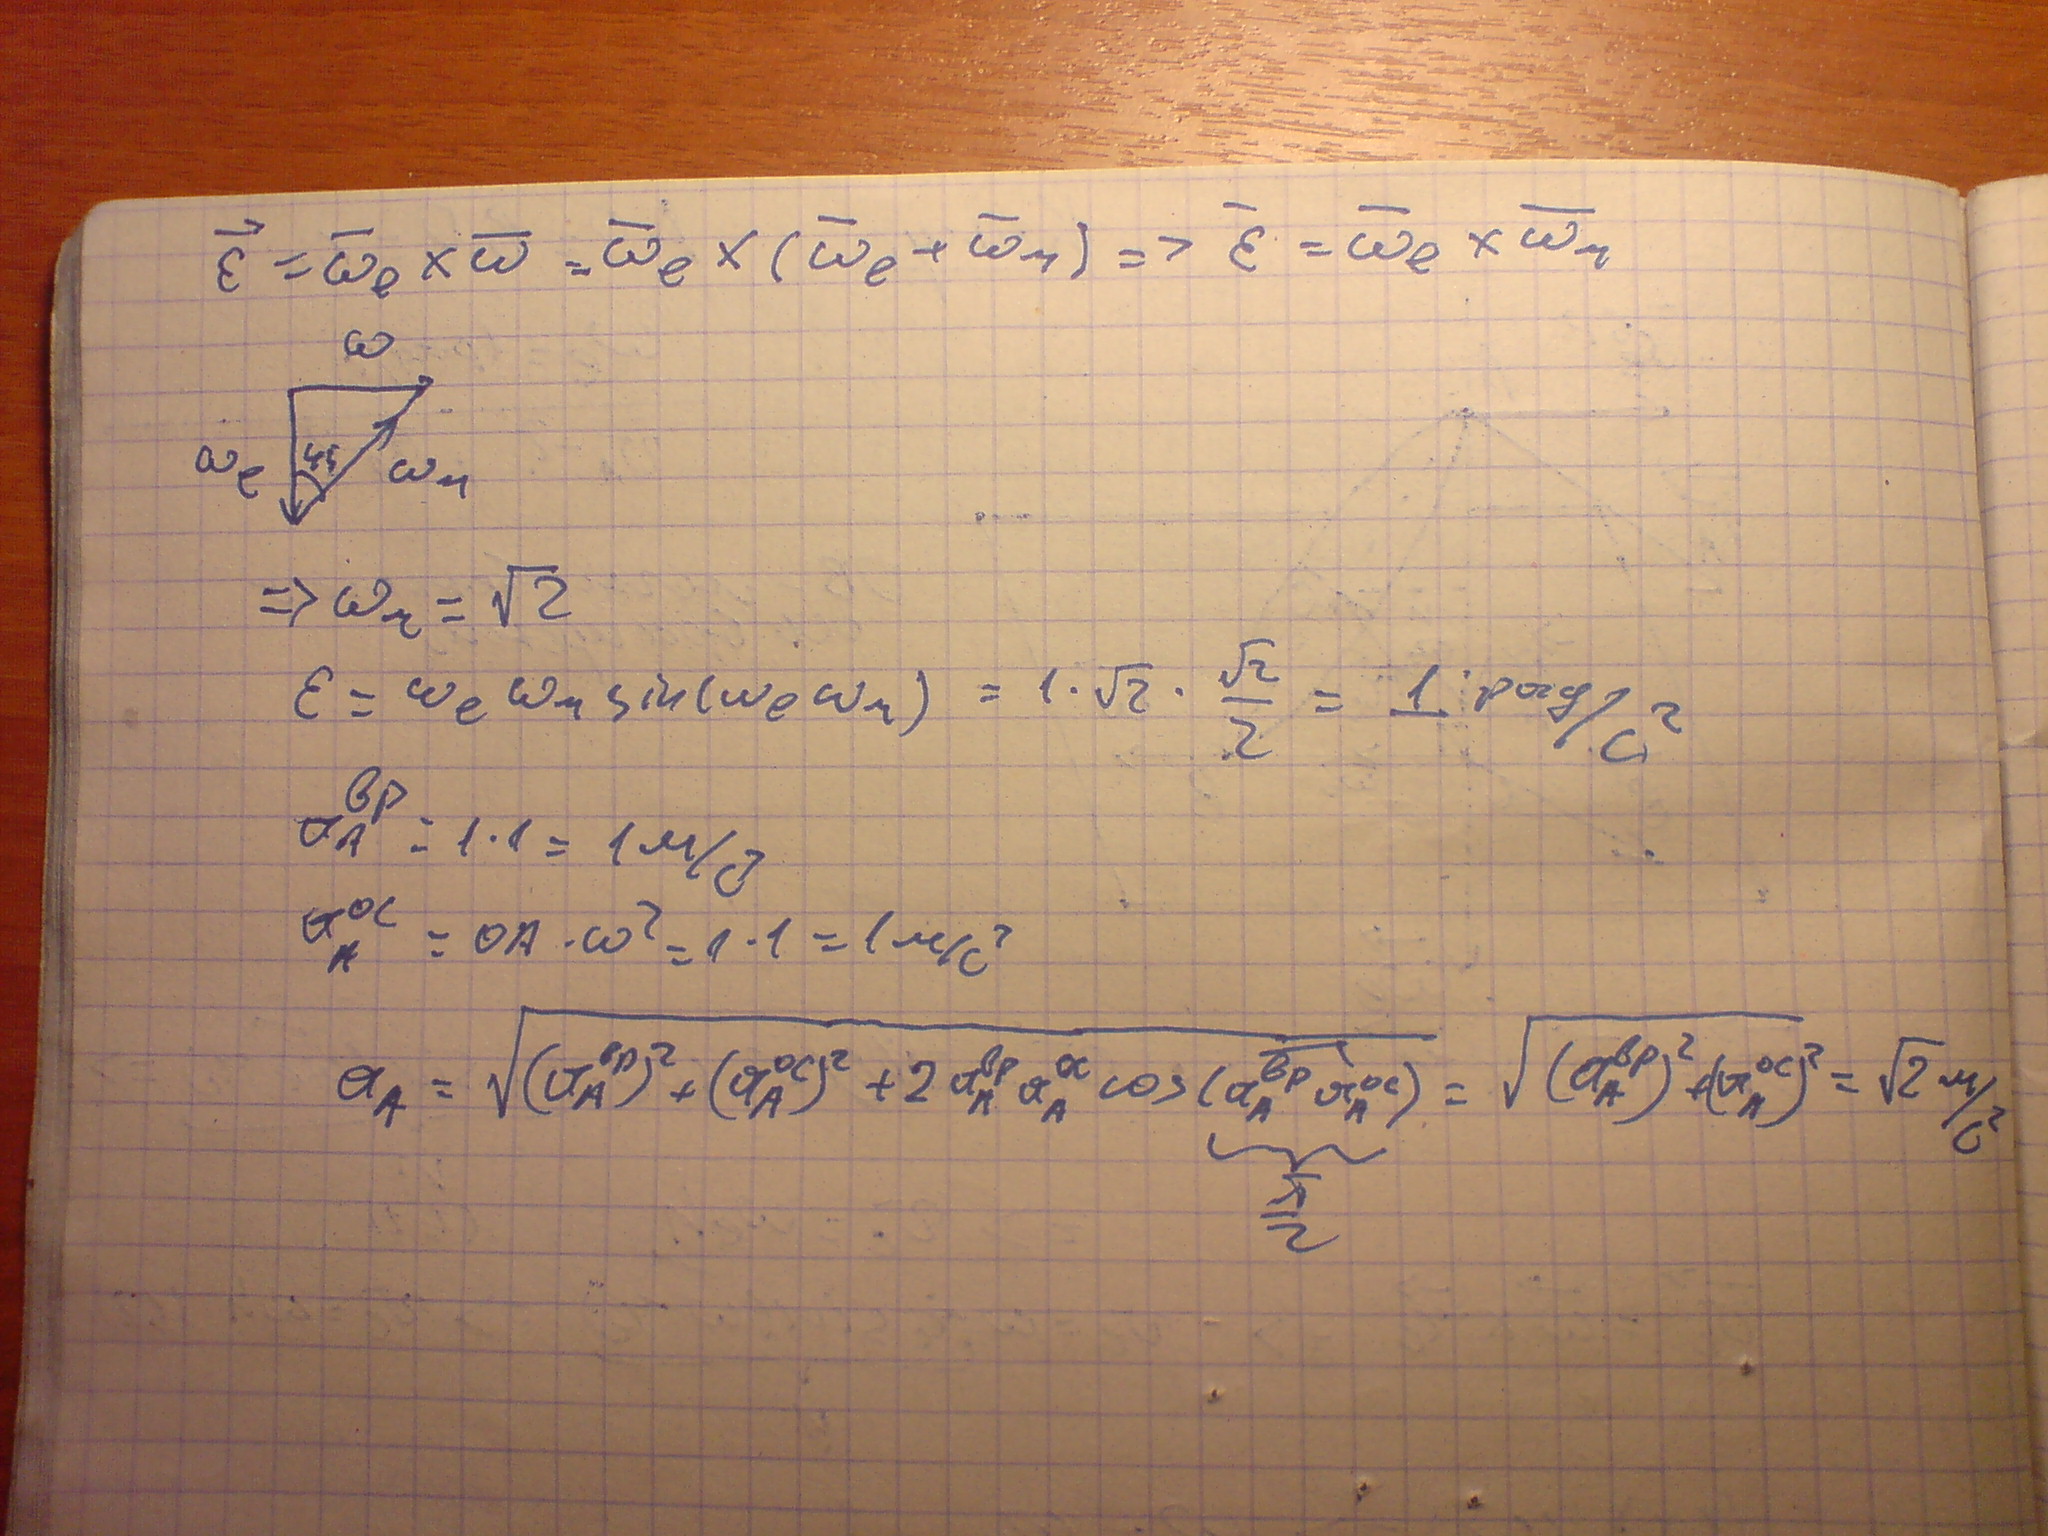 ε⃗ = ω̅ₑ × ω̅ = ω̅ₑ × (ω̅ₑ + ω̅ᵣ) => ε̅ = ω̅ₑ × ω̅ᵣ
ω
ωₑ 45 ωᵣ
=> ωᵣ = √2
ε = ωₑ ωᵣ sin(ωₑ ωᵣ) = 1·√2·√2/2 = 1 рад/с²
a_A^вр = 1·1 = 1 м/с²
a_A^ос = OA·ω² = 1·1 = 1 м/с²
a_A = √((a_A^вр)² + (a_A^ос)² + 2 a_A^вр a_A^ос cos(a_A^вр a_A^ос)) = √((a_A^вр)² + (a_A^ос)²) = √2 м/с²
π/2